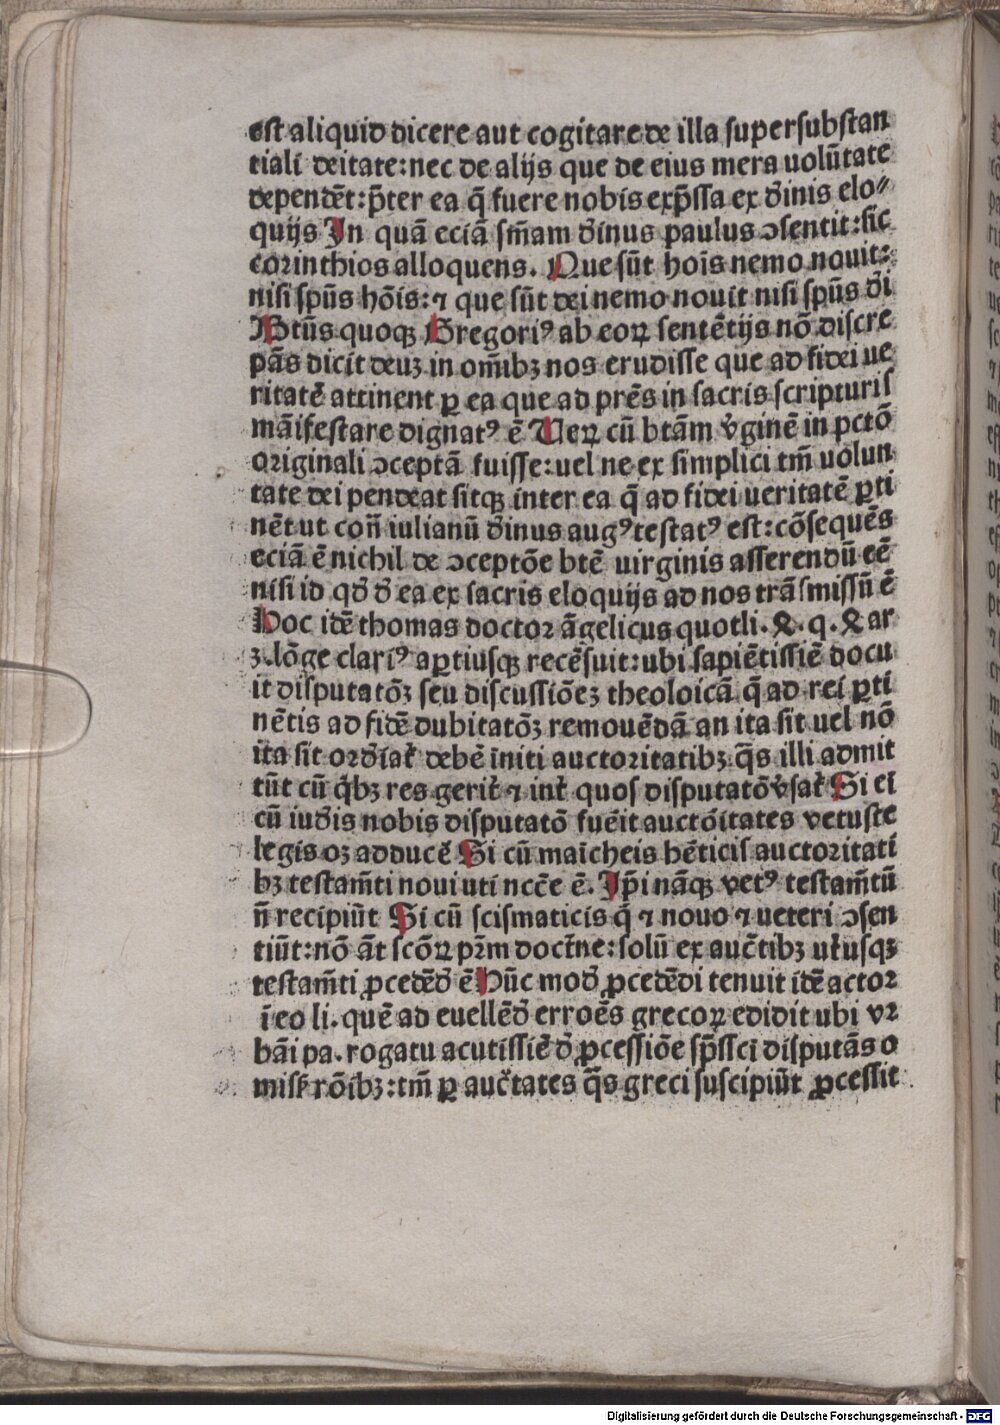 est aliquid dicere aut cogitare de illa supersubstan
tiali deitate: nec de alijs que de eius mera uolūtate
dependēt: p̄ter ea q̄ fuere nobis exp̄ssa ex d̓inis elo⸗
quijs In quā eciā sm̄am d̓inus paulus ɔsentit: sic
corinthios alloquens. Que sūt hoīs nemo nouit:
nisi spūs hōis: ⁊ que sūt dei nemo nouit nisi spūs d̓i
Btūs quoqꝫ Gregoriꝰ ab eoꝝ sentētijs nō discre
pās dicit deuꝫ in om̄ibꝫ nos erudisse que ad fidei ue
ritatē attinent ꝑ ea que ad prēs in sacris scripturis
māifestare dignatꝰ ē Ueꝝ cū btām v̓ginē in pctō
originali ɔceptā fuisse: uel ne ex simplici tm̄ uolun
tate dei pendeat sitqꝫ inter ea q̄ ad fidei ueritatē ꝑti
nēt ut con̄ iulianū d̓inus augꝰ testatꝰ est: cōsequēs
eciā ē nichil de ɔceptōe btē uirginis asserendū eē
nisi id qd̓ d̓ ea ex sacris eloquijs ad nos trāsmissū ē
Hoc idē thomas doctor āgelicus quotli. ⁊. q. ⁊ ar
ꝫ. lōge clariꝰ aꝑtiusqꝫ recēsuit: ubi sapiētissiē docu
it disputatōꝫ seu discussiōeꝫ theoloicā q̄ ad rei ꝑti
nētis ad fidē dubitatōꝫ remouēdā an ita sit uel nō
ita sit ord̓iat̓ debē īniti auctoritatibꝫ q̄s illi admit
tūt cū q̓bꝫ res gerit̓ ⁊ int̓ quos disputatō v̓sat̓ Si ei
cū iud̓is nobis disputatō fuēit auctōitates vetuste
legis oꝫ adducē Si cū maīcheis hēticis auctoritati
bꝫ testam̄ti noui uti nccē ē. Ip̄i nāqꝫ vetꝰ testam̄tū
n̄ recipiūt Si cū scismaticis q̓ ⁊ nouo ⁊ ueteri ɔsen
tiūt: nō āt scōꝝ pr̄m doct̄ne: solū ex auc̄tibꝫ ut̓usqꝫ
testam̄ti ꝓcedēd̓ ē Hūc mod̓ ꝓcedēdi tenuit idē actor
ī eo li. quē ad euellēd̓ erroēs grecoꝝ edidit ubi vr
bāi pa. rogatu acutissiē d̓ ꝓcessiōe sp̄ssci disputās o
missꝭ rōibꝫ: tm̄ ꝑ auc̄tates q̄s greci suscipiūt ꝓcessit
Digitalisierung gefördert durch die Deutsche Forschungsgemeinschaft - DFG